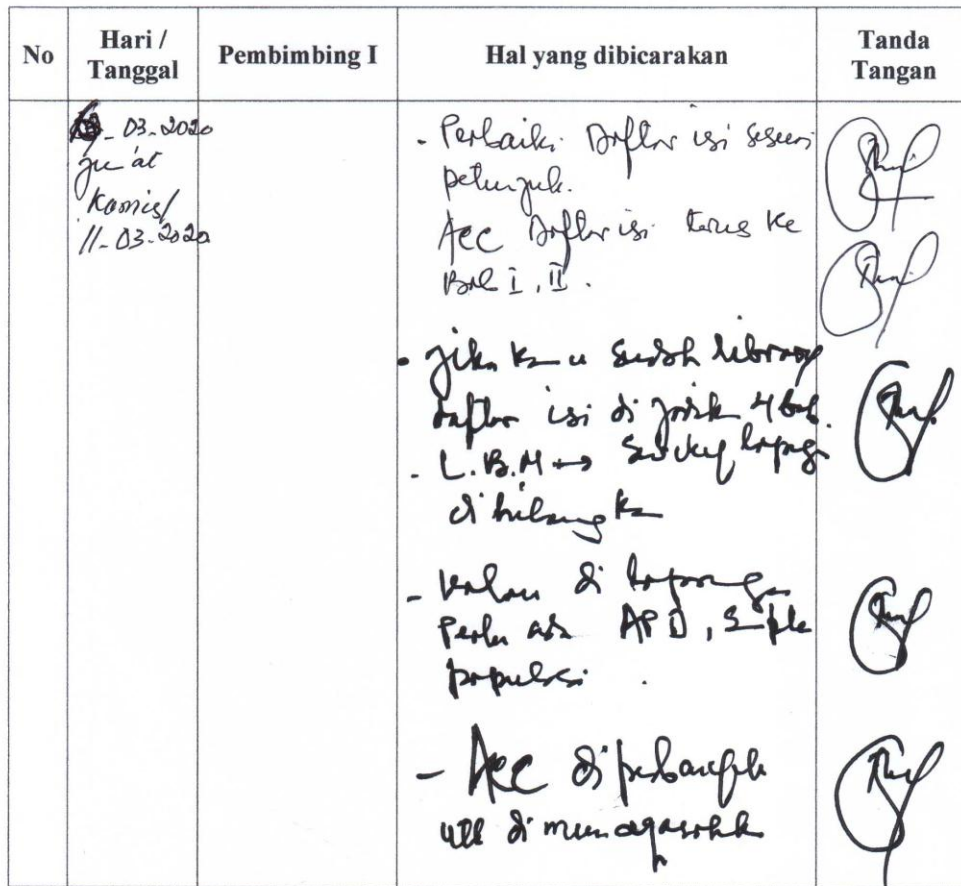 No
Hari /
Tanggal
Pembimbing I
Hal yang dibicarakan
Tanda
Tangan
- 03-2020
Ju'at
Kamis/
11-03-2020
- Perbaiki Daftar isi sesuai
petunjuk.
Acc Daftar isi terus ke
Bab I, II.
- jika kau sudah library
daftar isi di jadik 4 bab
- L.B.M → Survey lapag
di hilangka
- kalau di lapanga
Perlu ada APD, Sple
populasi.
- Acc diperbanyak
utk di munaqasahk